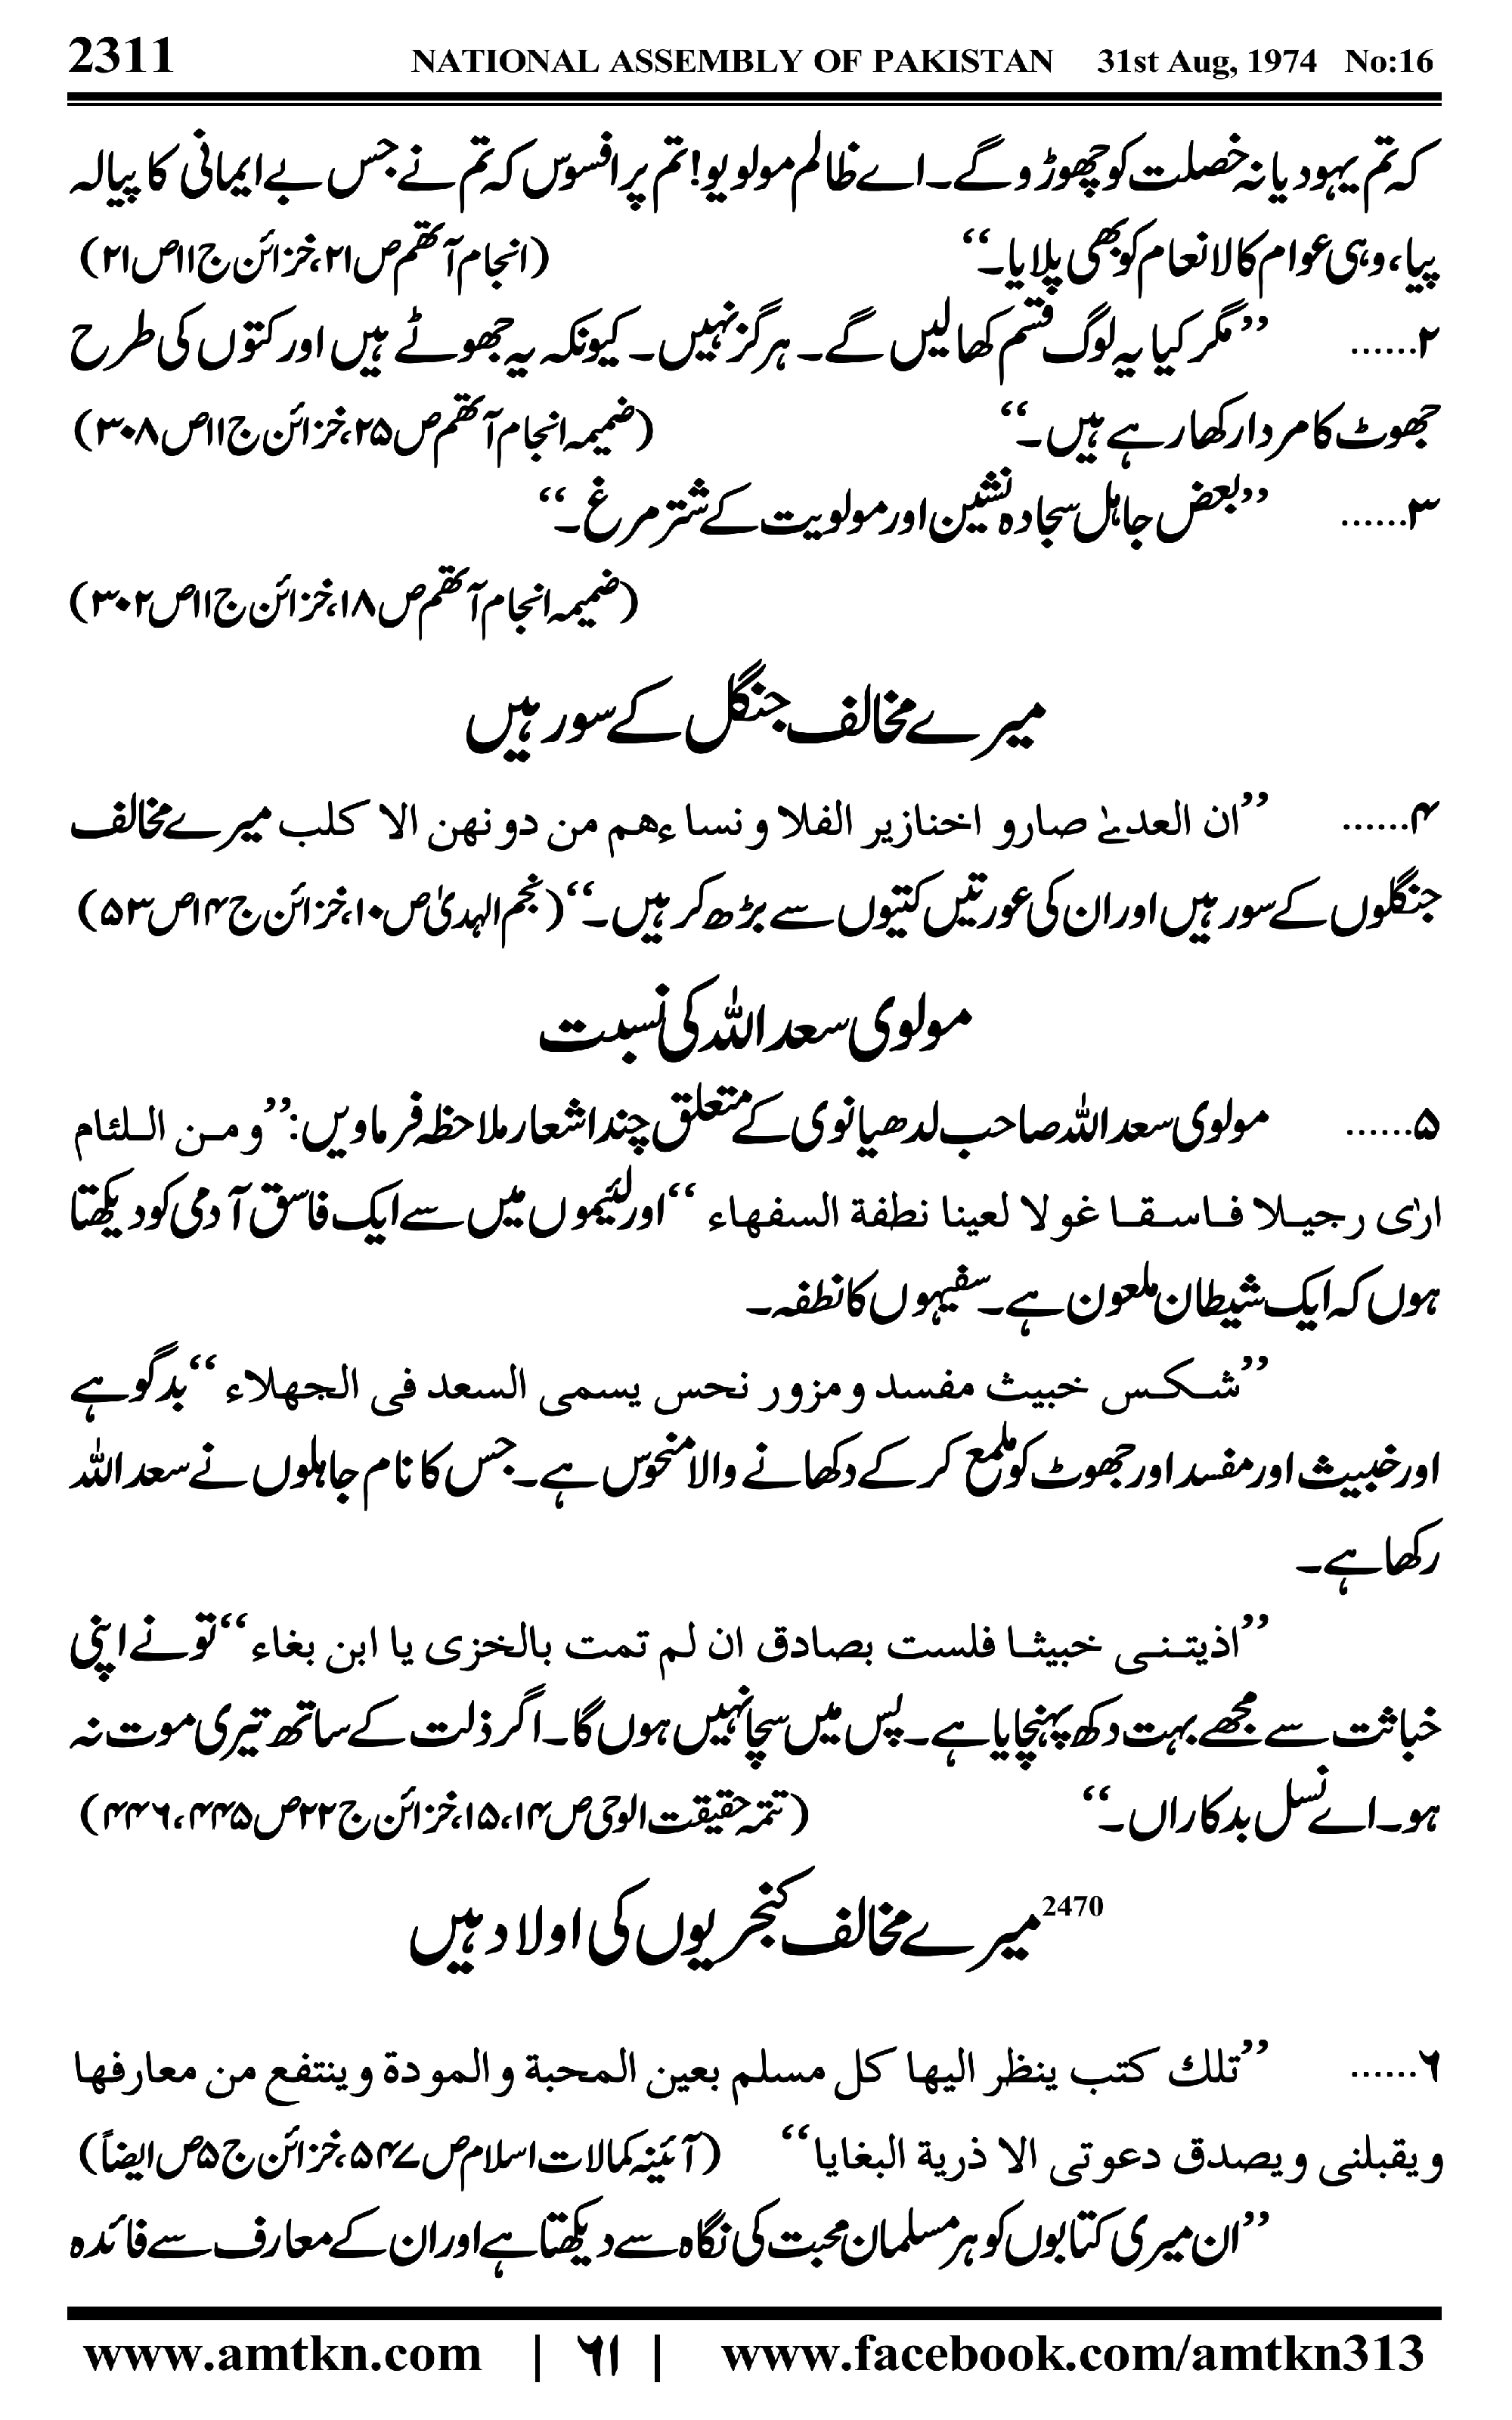 2311 NATIONAL ASSEMBLY OF PAKISTAN 31st Aug, 1974 No:16
کہ تم یہودیانہ خصلت کو چھوڑو گے۔ اے ظالم مولویو! تم پر افسوس کہ تم نے جس بے ایمانی کا پیالہ
پیا، وہی عوام کالانعام کو بھی پلایا۔‘‘ (انجام آتھم ص۲۱، خزائن ج۱۱ص۲۱)
۲...... ’’مگر کیا یہ لوگ قسم کھالیں گے۔ ہرگز نہیں۔ کیونکہ یہ جھوٹے ہیں اور کتوں کی طرح
جھوٹ کا مردار کھا رہے ہیں۔‘‘ (ضمیمہ انجام آتھم ص۲۵، خزائن ج۱۱ص۳۰۸)
۳...... ’’بعض جاہل سجادہ نشین اور مولویت کے شتر مرغ۔‘‘
(ضمیمہ انجام آتھم ص۱۸، خزائن ج۱۱ص۳۰۲)
میرے مخالف جنگل کے سور ہیں
۴...... ’’ان العدیٰ صارو اخنازیر الفلا و نساءھم من دونھن الا کلب میرے مخالف
جنگلوں کے سور ہیں اور ان کی عورتیں کتیوں سے بڑھ کر ہیں۔‘‘ (نجم الہدیٰ ص۱۰، خزائن ج۱۴ص۵۳)
مولوی سعد اللہ کی نسبت
۵...... مولوی سعد اللہ صاحب لدھیانوی کے متعلق چند اشعار ملاحظہ فرماویں: ’’ومن اللئام
اریٰ رجیلا فاسقا غولا لعینا نطفة السفهاء ‘‘ اور لئیموں میں سے ایک فاسق آدمی کو دیکھتا
ہوں کہ ایک شیطان ملعون ہے۔ سفیہوں کا نطفہ۔
’’شکس خبیث مفسد ومزور نحس یسمی السعد فی الجهلاء ‘‘ بدگو ہے
اور خبیث اور مفسد اور جھوٹ کو ملمع کر کے دکھانے والا منحوس ہے۔ جس کا نام جاہلوں نے سعد اللہ
رکھا ہے۔
’’اذیتنی خبیثا فلست بصادق ان لم تمت بالخزی یا ابن بغاء ‘‘ تو نے اپنی
خباثت سے مجھے بہت دکھ پہنچایا ہے۔ پس میں سچا نہیں ہوں گا۔ اگر ذلت کے ساتھ تیری موت نہ
ہو۔ اے نسل بدکاراں۔‘‘ (تتمہ حقیقت الوحی ص۱۴،۱۵، خزائن ج۲۲ص۴۴۵،۴۴۶)
2470 میرے مخالف کنجریوں کی اولاد ہیں
۶...... ’’تلك کتب ینظر الیها کل مسلم بعین المحبة والمودة وینتفع من معارفها
ویقبلنی ویصدق دعوتی الا ذریة البغایا‘‘ (آئینہ کمالات اسلام ص۵۴۷، خزائن ج۵ص ایضاً)
’’ان میری کتابوں کو ہر مسلمان محبت کی نگاہ سے دیکھتا ہے اور ان کے معارف سے فائدہ
www.amtkn.com | ۶۱ | www.facebook.com/amtkn313